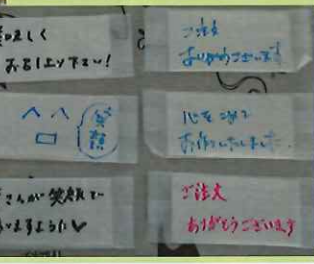 美味しく
お召し上り下さい!
ご注文
ありがとうございます
笑顔
心をこめて
お作りいたしました
さんが笑顔で
いますように♥
ご注文
ありがとうございます